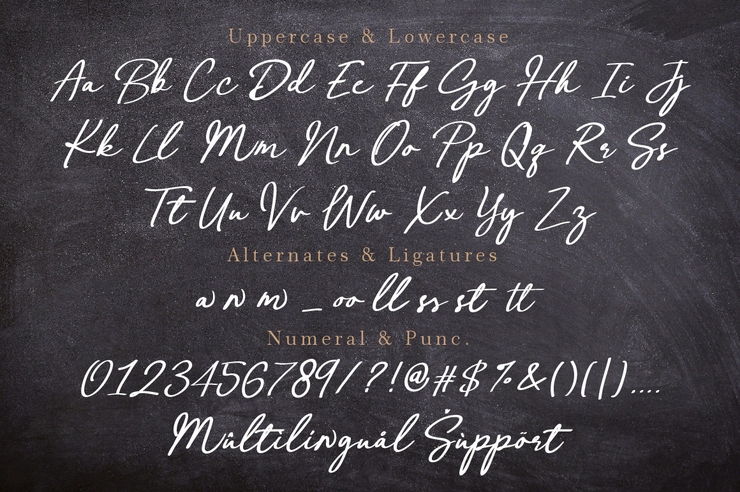 Uppercase & Lowercase
Aa Bb Cc Dd Ee Ff Gg Hh Ii Jj
Kk Ll Mm Nn Oo Pp Qq Rr Ss
Tt Uu Vv Ww Xx Yy Zz
Alternates & Ligatures
a n m _ oo ll ss st tt
Numeral & Punc.
0123456789/?!@#$%&()(|)....
Múltilinguál Ṡùppõrt